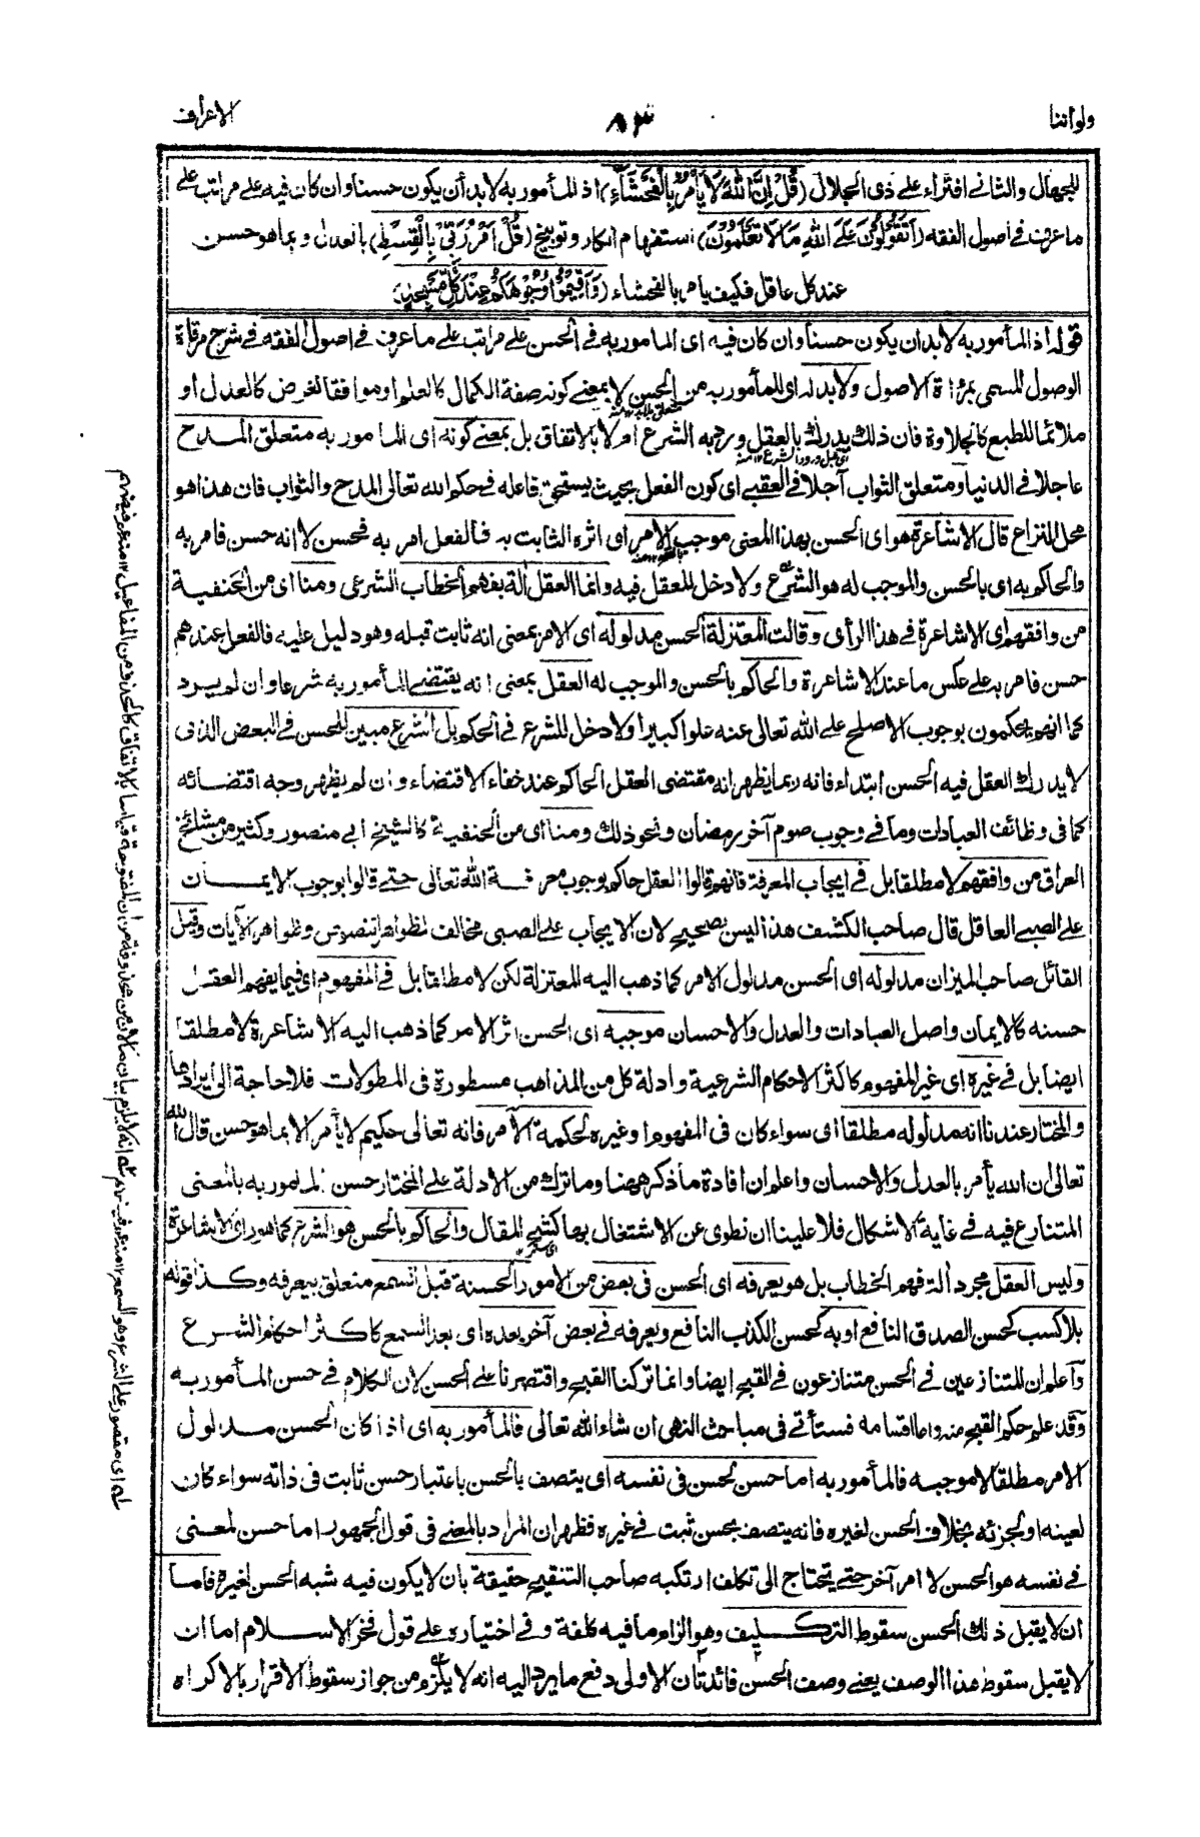 ولو أننا
٨٣
الاعراف
للجهال والثاني افتراء على ذى الجلال (قُلْ اِنَّ اللّٰهَ لَا يَأْمُرُ بِالْفَحْشَاءِ) اذ المأمور به لابد أن يكون حسنا وان كان فيه على مراتب على
ما عرف فى اصول الفقه (اَتَقُوْلُوْنَ عَلَى اللّٰهِ مَا لَا تَعْلَمُوْنَ) استفهام انكار وتوبيخ (قُلْ اَمَرَ رَبِّيْ بِالْقِسْطِ) بالعدل وبما هو حسن
عند كل عاقل فكيف يامر بالفحشاء (وَاَقِيْمُوْا وُجُوْهَكُمْ عِنْدَ كُلِّ مَسْجِدٍ)
قوله اذ المأمور به لابد ان يكون حسنا وان كان فيه اى المامور به فى الحسن على مراتب على ما عرف فى اصول الفقه فى شرح مرقاة
الوصول المسمى بمرأة الاصول ولابد له اى للمأمور به من الحسن لا بمعنى كونه صفة الكمال كالعلم او موافقا لغرض كالعدل او
ملائما للطبع كالحلاوة فان ذلك يدرك بالعقل ورد به الشرع ام لا بالاتفاق بل بمعنى كونه اى المامور به متعلق المدح
عاجلا فى الدنيا ومتعلق الثواب آجلا فى العقبى اى كون الفعل بحيث يستحق فاعله فى حكم الله تعالى المدح والثواب فان هذا هو
محل النزاع قال الاشاعرة هو اى الحسن بهذا المعنى موجب الامر اى اثره الثابت به فالفعل امر به فحسن لا انه حسن فامر به
والحاكم به اى بالحسن والموجب له هو الشرع ولا دخل للعقل فيه وانما العقل ألة يفهم الخطاب الشرعى ومنا اى من الحنفية
من وافقهم اى الاشاعرة فى هذا الرأى وقالت المعتزلة الحسن مدلوله اى الامر بمعنى انه ثابت قبله وهو دليل عليه فالفعل عندهم
حسن فامر به على عكس ما عند الاشاعرة والحاكم بالحسن والموجب له العقل بمعنى انه يقتضى المأمور به شرعا وان لم يرد
كما انهم يحكمون بوجوب الاصلح على الله تعالى عنه علوا كبيرا ولا دخل للشرع فى الحكم بل الشرع مبين للحسن فى البعض الذى
لا يدرك العقل فيه الحسن ابتداء فانه ربما يظهر انه مقتضى العقل الحاكم عند خفاء الاقتضاء وان لم يظهر وجه اقتضائه
كما فى وظائف العبادات وما فى وجوب صوم آخر رمضان ونحو ذلك ومنا اى من الحنفية كالشيخ ابى منصور وكثير من مشائخ
العراق من وافقهم لا مطلقا بل فى ايجاب المعرفة فانهم قالوا العقل حاكم بوجوب معرفة الله تعالى حتى قالوا بوجوب الايمان
على الصبى العاقل قال صاحب الكشف هذا ليس بصحيح لان الايجاب على الصبى مخالف لظواهر النصوص وظواهر الآيات وقيل
القائل صاحب الميزان مدلوله اى الحسن مدلول الامر كما ذهب اليه المعتزلة لكن لا مطلقا بل فى المفهوم اى فيما يفهم العقل
حسنه كالايمان واصل العبادات والعدل والاحسان موجبه اى الحسن اثر الامر كما ذهب اليه الاشاعرة لا مطلقا
ايضا بل فى غيره اى غير المفهوم كاكثر الاحكام الشرعية وادلة كل من المذاهب مسطورة فى المطولات فلا حاجة الى ايرادها
والمختار عندنا انه مدلوله مطلقا اى سواء كان فى المفهوم او غيره لحكمية الأمر فانه تعالى حكيم لا يأمر الا بما هو حسن قال الله
تعالى ان الله يأمر بالعدل والاحسان واعلم ان افادة ما ذكر ههنا وما ترك من الادلة على المختار حسن المامور به بالمعنى
المتنازع فيه فى غاية الاشكال فلا علينا ان نطوى عن الاشتغال بها كشح المقال والحاكم بالحسن هو الشرع كما هو رأى الاشاعرة
وليس العقل مجرد ألة فهم الخطاب بل هو يعرفه اى الحسن فى بعض من الامور الحسنة قبل السمع متعلق بيعرفه وكذا قوله
بلا كسب كحسن الصدق النافع او به كحسن الكذب النافع ويعرفه فى بعض آخر بعده اى بعد السمع كاكثر احكام الشرع
وأعلم ان المتنازعين فى الحسن متنازعون فى القبح ايضا وانما تركنا القبح واقتصرنا على الحسن لان الكلام فى حسن المأمور به
وقد علم حكم القبح منه واما اقسامه فستأتى فى مباحث النهى ان شاء الله تعالى فالمأمور به اى اذا كان الحسن مدلول
الامر مطلقا لا موجبه فالمأمور به اما حسن لحسن فى نفسه اى يتصف بالحسن باعتبار حسن ثابت فى ذاته سواء كان
لعينه او لجزئه بخلاف الحسن لغيره فانه يتصف بحسن ثبت فى غيره فظهر ان المراد بالمعنى فى قول الجمهور اما حسن لمعنى
فى نفسه هو الحسن لا امر آخر حتى يحتاج الى تكلف ارتكبه صاحب التنقيح حقيقة بان لا يكون فيه شبه الحسن لغيره فاما
ان لا يقبل ذلك الحسن سقوط التكليف وهو الزام ما فيه كلفة وفى اختياره على قول فخر الاسلام اما ان
لا يقبل سقوط هذا الوصف يعنى وصف الحسن فائدتان الاولى دفع ما يرد اليه انه لا يلزم من جواز سقوط الاقرار بالاكراه